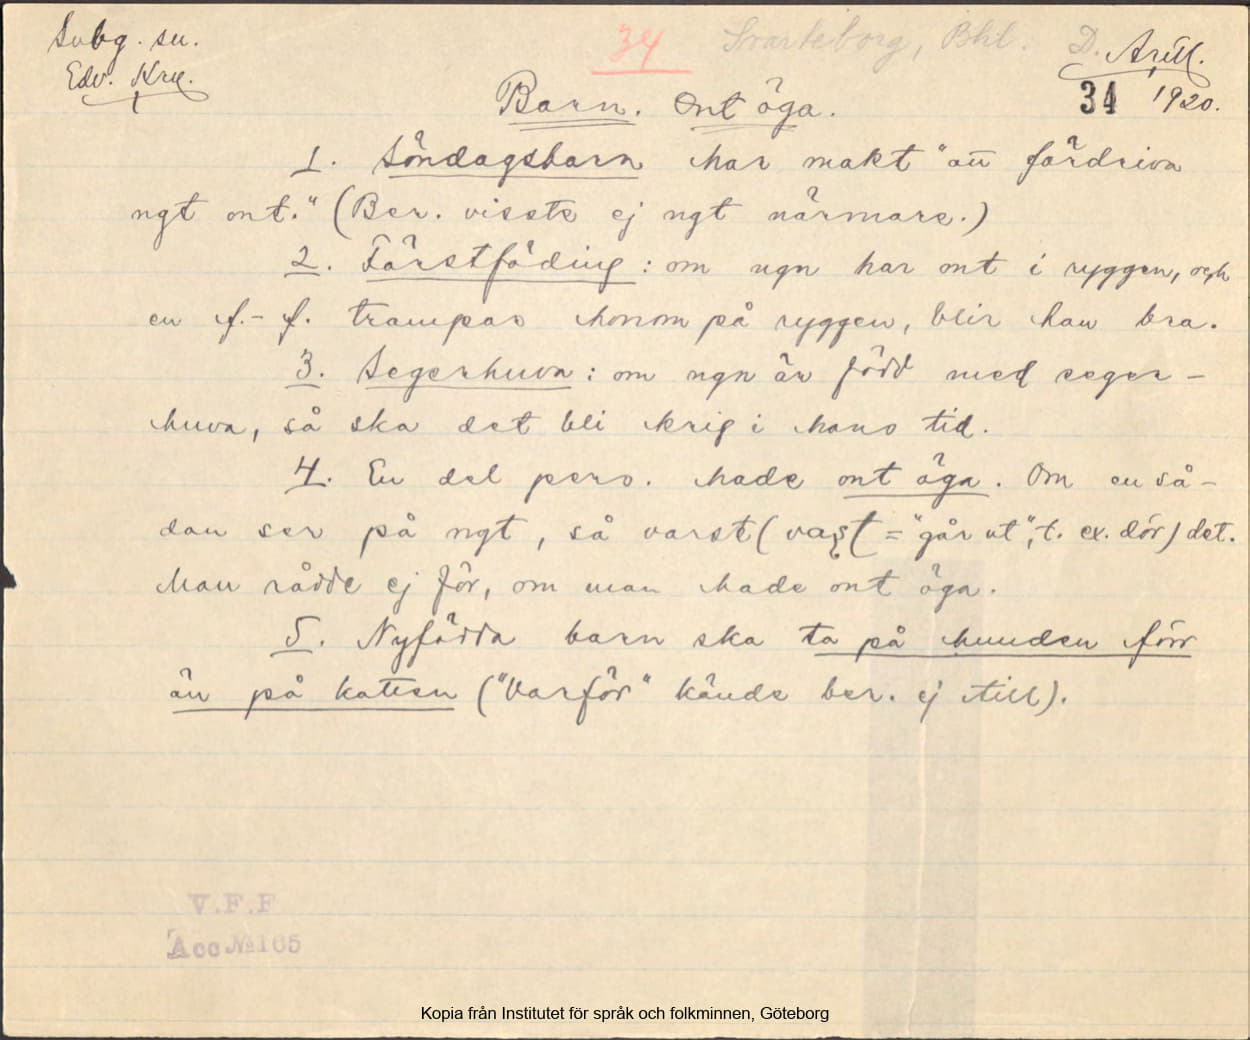 Svbg. sn.
Edv. Kry.
34
Svarteborg, Bhl.
D. Arill.
34 1920.
Barn. Ont öga.
1. Söndagsbarn har makt "att fördriva
ngt ont." (Ber. visste ej ngt närmare.)
2. Förstföding: om ngn har ont i ryggen, och
en f.-f. trampar honom på ryggen, blir han bra.
3. Segerhuva: om ngn är född med seger-
huva, så ska det bli krig i hans tid.
4. En del pers. hade ont öga. Om en så-
dan ser på ngt, så varst ( = "går ut", t. ex. dör) det.
Man rådde ej för, om man hade ont öga.
5. Nyfödda barn ska ta på hunden förr
än på katten ("Varför" kände ber. ej till).
V.F.F
Acc № 165
Kopia från Institutet för språk och folkminnen, Göteborg